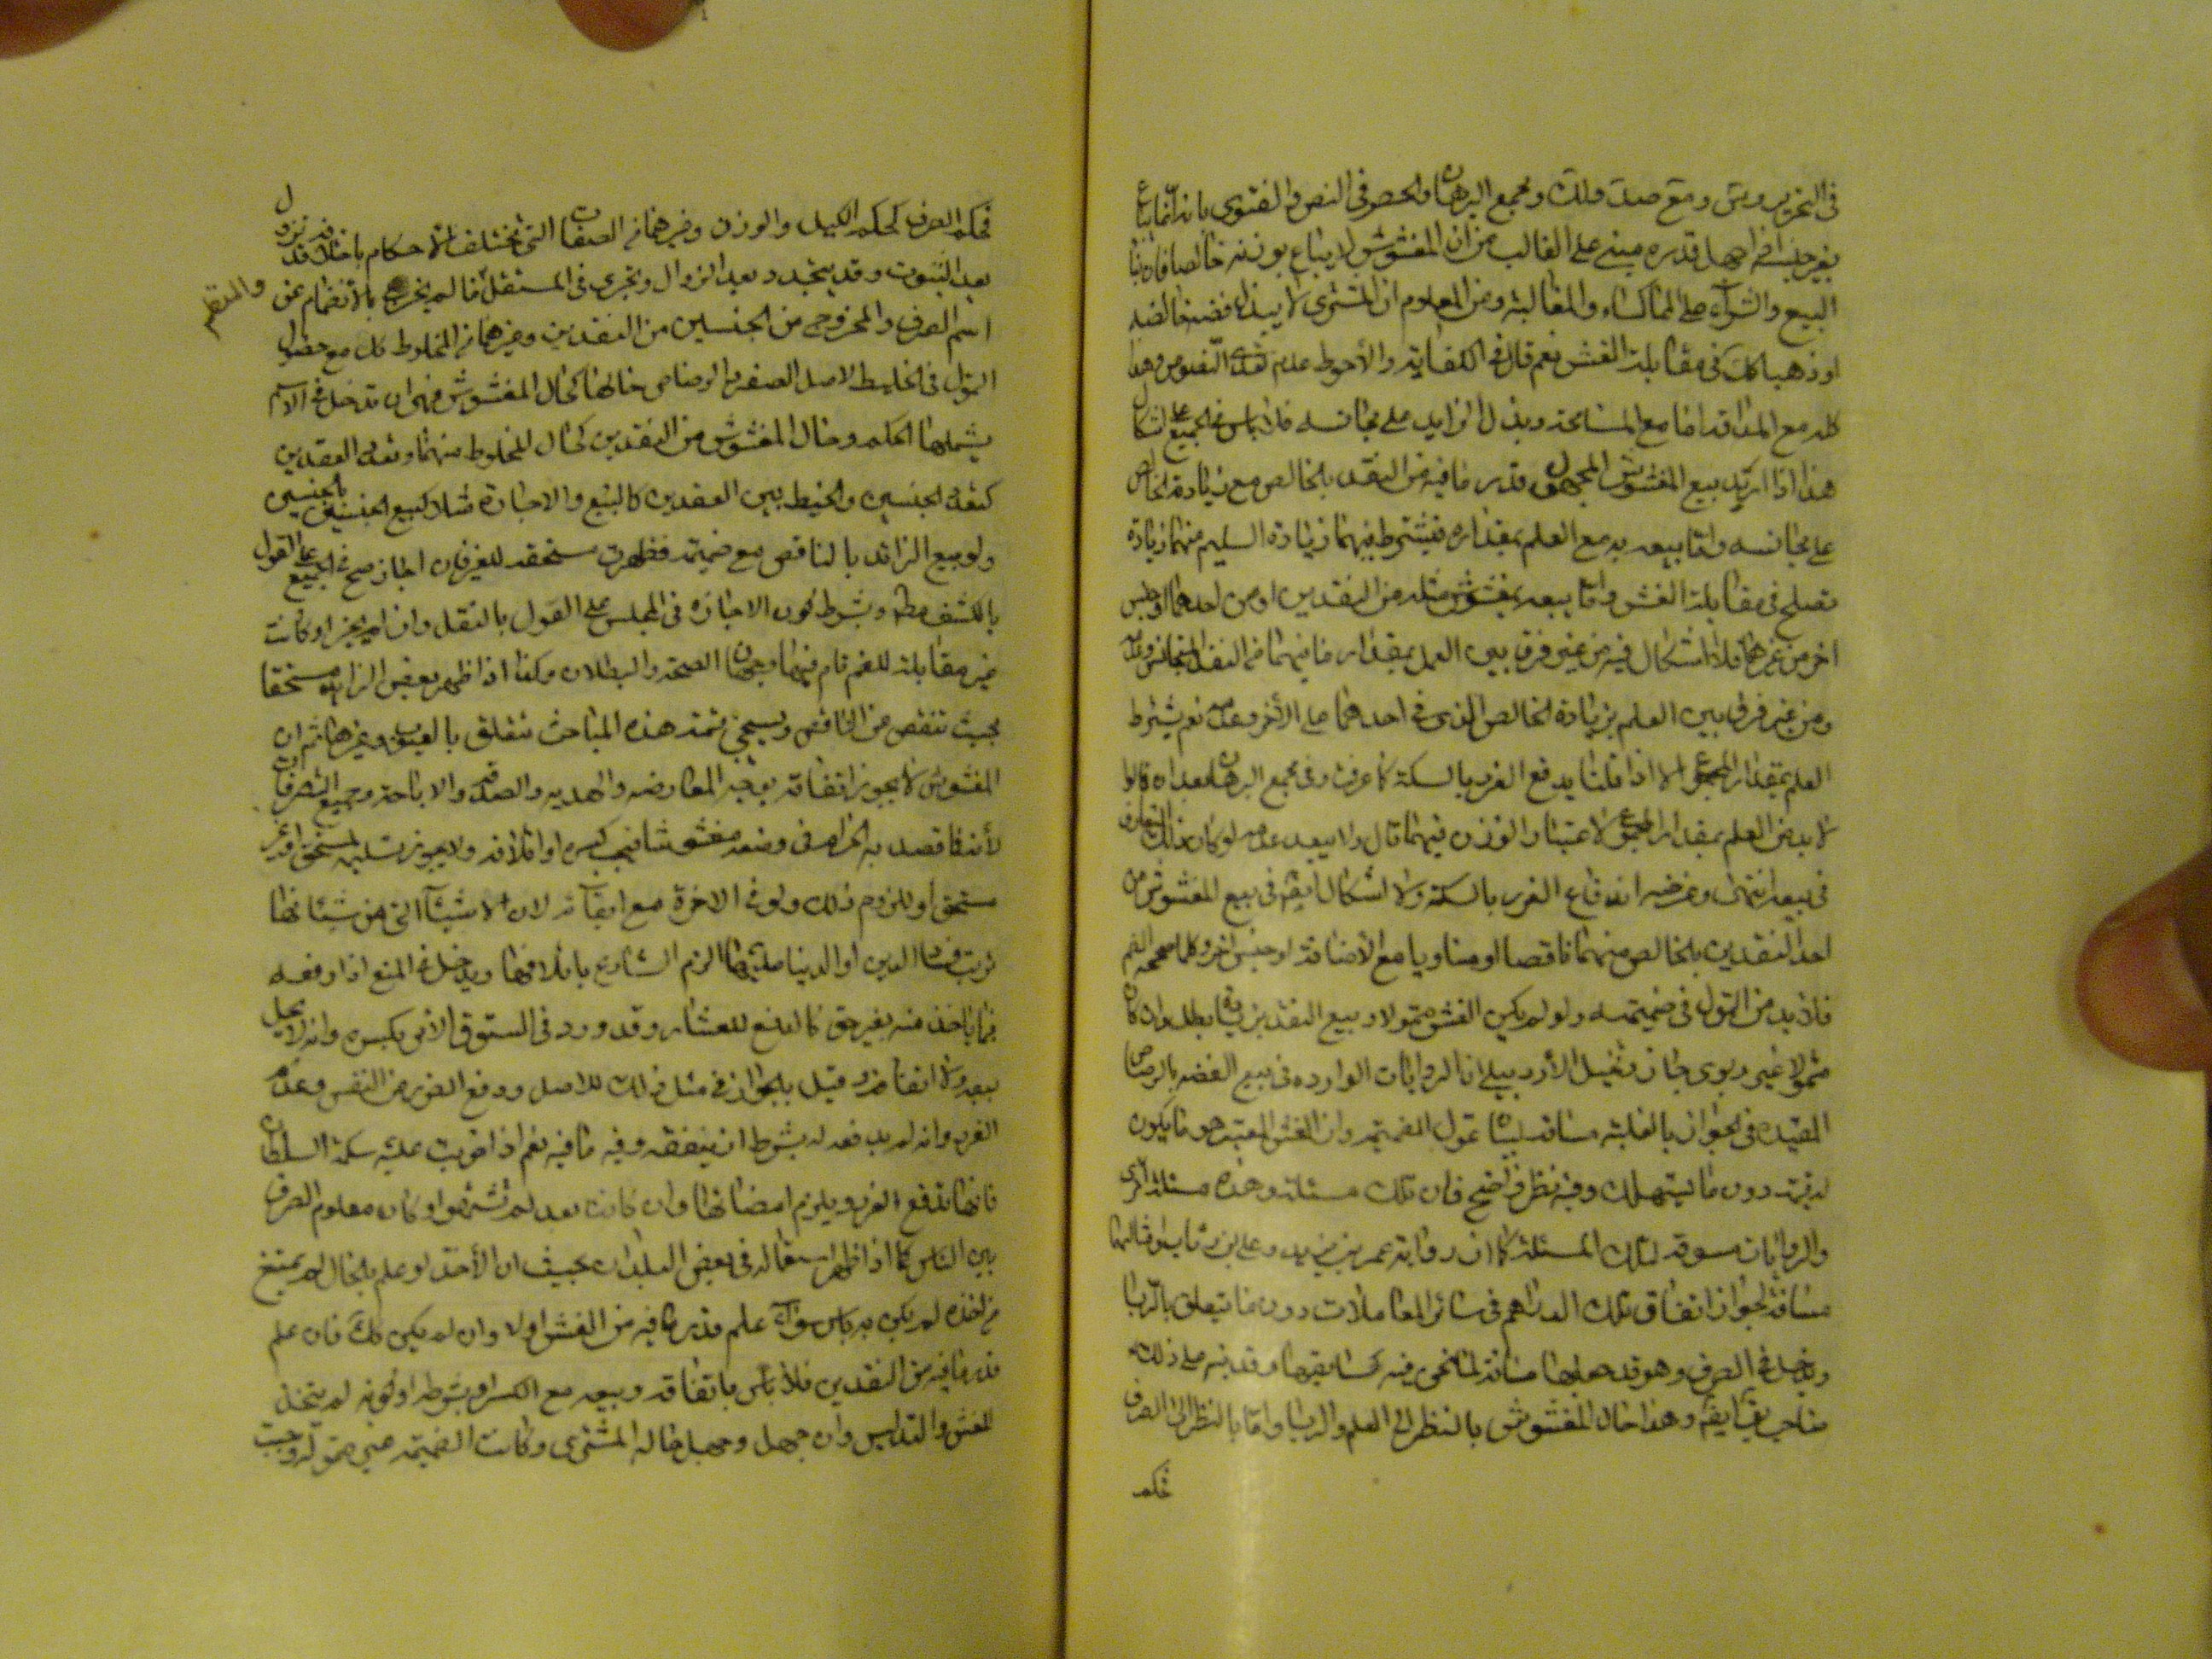 في التحرير وس ومع صد ولك ومجمع البرهان والحصر في النص والفتوى بانه انما يباع
بغير جنسه اذا جهل قدره مبني على الغالب من ان المغشوش لا يباع بوزنه خالصا فان بناء
البيع والشراء على المماكسة والمغالبة ومن المعلوم ان المشتري لا يبذل فضة خالصة
او ذهبا كك في مقابلة الغش نعم قال في الكفاية والأحوط عدم وهذا
كله مع المداقة اما مع المسامحة وبذل الزايد على مجانسه فلا باس في الجميع على
هذا اذا اريد بيع المغشوش المجهول قدر ما فيه من النقد بالخالص مع زيادة الخالص
على مجانسه واما بيعه به مع العلم بمقداره فيشترط فيهما زيادة السليم منهما زيادة
تصلح في مقابلة الغش واما بيعه بمغشوش مثله من النقدين او من احدهما او جنس
اخر من غيرهما فلا اشكال فيه من غير فرق بين العلم بمقدار ما فيهما من النقد المتجانس وعدمه
ومن غير فرق بين العلم بزيادة الخالص الذي في احدهما على الأخر وعدمه نعم يشترط
العلم بمقدار المجموع الا اذا قلنا يدفع الغرر بالسكة كما عرفت وفي مجمع البرهان بعد ان قالوا
لا بد من العلم بمقدار المجموع لاعتبار الوزن فيهما قال ولا يبعد عدمه لو كان ذلك المتعارف
في بيعه انتهى وغرضه اندفاع الغرر بالسكة ولا اشكال ايضا في بيع المغشوش من
احد النقدين بالخالص منهما ناقصا او مساويا مع الأضافة او جنس اخر وكلما صححه الضم
فلا بد من التمول في ضميمته ولو لم يكن الغش متمولا وبيع النقد بزيادة بطل وان كان
متمولا غير ربوي جاز وتخيل الأردبيلي ان الروايات الواردة في بيع الفضة بالرصاص
المقيدة في الجواز بالغلبة مساقة لبيان تمول الضميمة وان الغش المعتبر هو ما يكون
له قيمة دون ما يستهلك وفيه نظر واضح فان تلك مسئلة وهذه مسئلة اخرى
والروايات مسوقة لتلك المسئلة كما ان رواية عمر بن يزيد وعلي بن رئاب
مساقة لجواز انفاق تلك الدراهم في سائر المعاملات دون ما يتعلق بالربا
ويدخل في الصرف وهو قد جعلها مساقة لما نحن فيه على ذلك
صاحب ايضا وهذا حال المغشوش بالنظر الى العلم والربا واما بالنظر الى الصرف
فحكم
فحكم الصرف كحكم الكيل والوزن وغيرهما من الصفات التي تختلف الأحكام باختلافه قد تزول
بعد الثبوت وقد يتجدد بعد الزوال ويجري في المستقل ما لم يخرج بالأنضمام عن
والمنضم
اسم الصرف والممزوج من الجنسين من النقدين وغيرهما من المخلوط كل مع حصول
التمول في الخليط لاصل الصفر والرصاص حالها كحال المغشوش فهي ان تدخل في الاسم
يشملها الحكم وحال المغشوش من النقدين كحال المخلوط منهما وتعدد العقدين
كتعدد الجنسين والخيط بين العقدين كالبيع والاجارة مثلا كبيع الجنسين بالجنسين
ولو بيع الزائد بالناقص مع ضميمة فظهرت مستحقة للغير فان اجاز صح في الجميع على القول
بالكشف مطلقا وبشرط كون الاجازة في المجلس على القول بالنقل وان لم يجز او كانت
غير مقابلة للضم قام فيهما وجهان الصحة والبطلان وكذا اذا ظهر بعض الزايد مستحقا
بحيث تنقص من الناقص وسيجئ تتمة هذه المباحث تتعلق بالعيوب وغيرها ثم ان
المغشوش لا يجوز انفاقه بوجه المعاوضة والهدية والصدقة والاباحة وجميع التصرفات
لأنه ما قصد به الحرام في وضعه مغشوشا فيجب كسره او اتلافه ولا يجوز تسليمه لمستحق او غير
مستحق او للزوم ذلك ولو في الاخرة مع ابقائه لان الاشياء التي من شئانها
ترتب فساد الدين او الدنيا عليها الزم الشارع باتلافها ويدخل في المنع اذا دفعه
فيما ياخذ منه بغير حق كالدفع للعشار وقد ورد في الستوق الأمر بكسره وانه لا يحل
بيعه ولا انفاقه وقيل بالجواز في مثل ذلك للاصل ودفع الضرر عن النفس وعدم
الغرر وانه لم يدفعه له بشرط ان ينفقه وفيه ما فيه نعم اذا ضربت عليه سكة السلطان
فانها تدفع الغرر ويلزم امضائها وان كانت بعد لم تشتهر او كان معلوم الصرف
بين الناس كما اذا ظهر استعماله في بعض البلدان بحيث ان الأخذ لو علم بالحال لم يمتنع
من اخذه لم يكن به باس سواء علم قدر ما فيه من الغش اولا وان لم يكن كك فان علم
قدر ما فيه من النقدين فلا باس بانفاقه وبيعه مع الكسر او بشرطه او لكونه لم يتخذ
للغش والتدليس وان جهل وجهل حاله المشتري وكانت الضميمة غير متمولة وجب